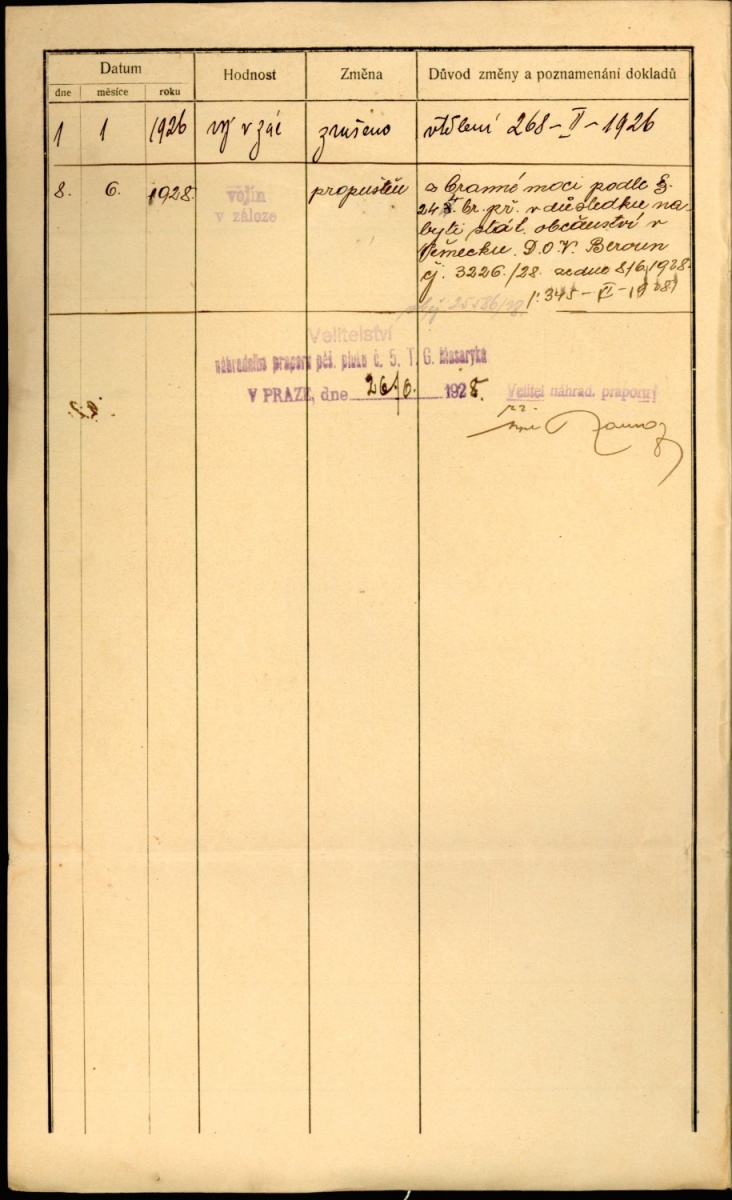 Datum Hodnost Změna Důvod změny a poznamenání dokladů
dne měsíce roku
1 1 1926 zrušeno vtělení 268-II-1926
8. 6. 1928. vojín propuštěn z branné moci podle §.
v záloze 24 br. př. v důsledku na-
bytí stát. občanství v
Německu. D.O.V. Beroun
čj. 3226./28. ze dne 8/6 1928.
1:345-VI-1928
25586/28.
Velitelství
náhradního praporu pěš. pluku č. 5. T. G. Masaryka
V PRAZE, dne 26/6. 1928. Velitel náhrad. praporu